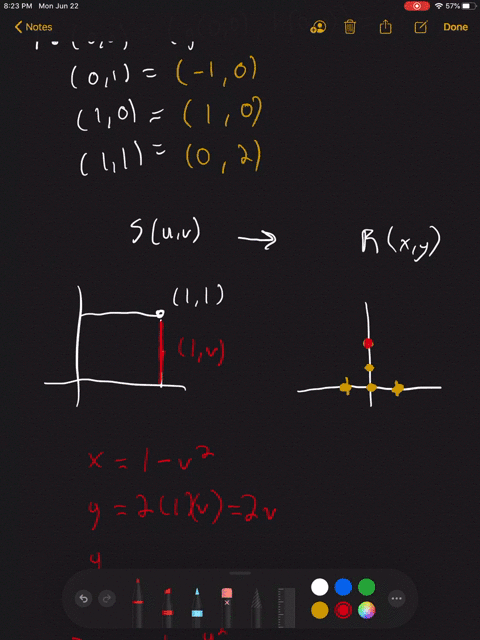 8:23 PM Mon Jun 22
57%
Notes
Done
(0,1) = (-1,0)
(1,0) = (1,0)
(1,1) = (0,2)
S(u,v) → R(x,y)
(1,1)
(1,v)
x = 1 - v²
y = 2(1)(v) = 2v
y